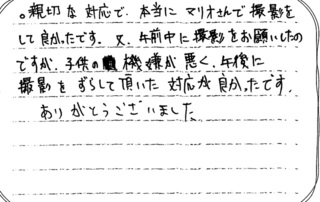 。親切な対応で、本当にマリオさんで撮影を
して良かったです。又、午前中に撮影をお願いしたの
ですが、子供の機嫌が悪く、午後に
撮影をずらして頂いた対応が良かったです。
ありがとうございました